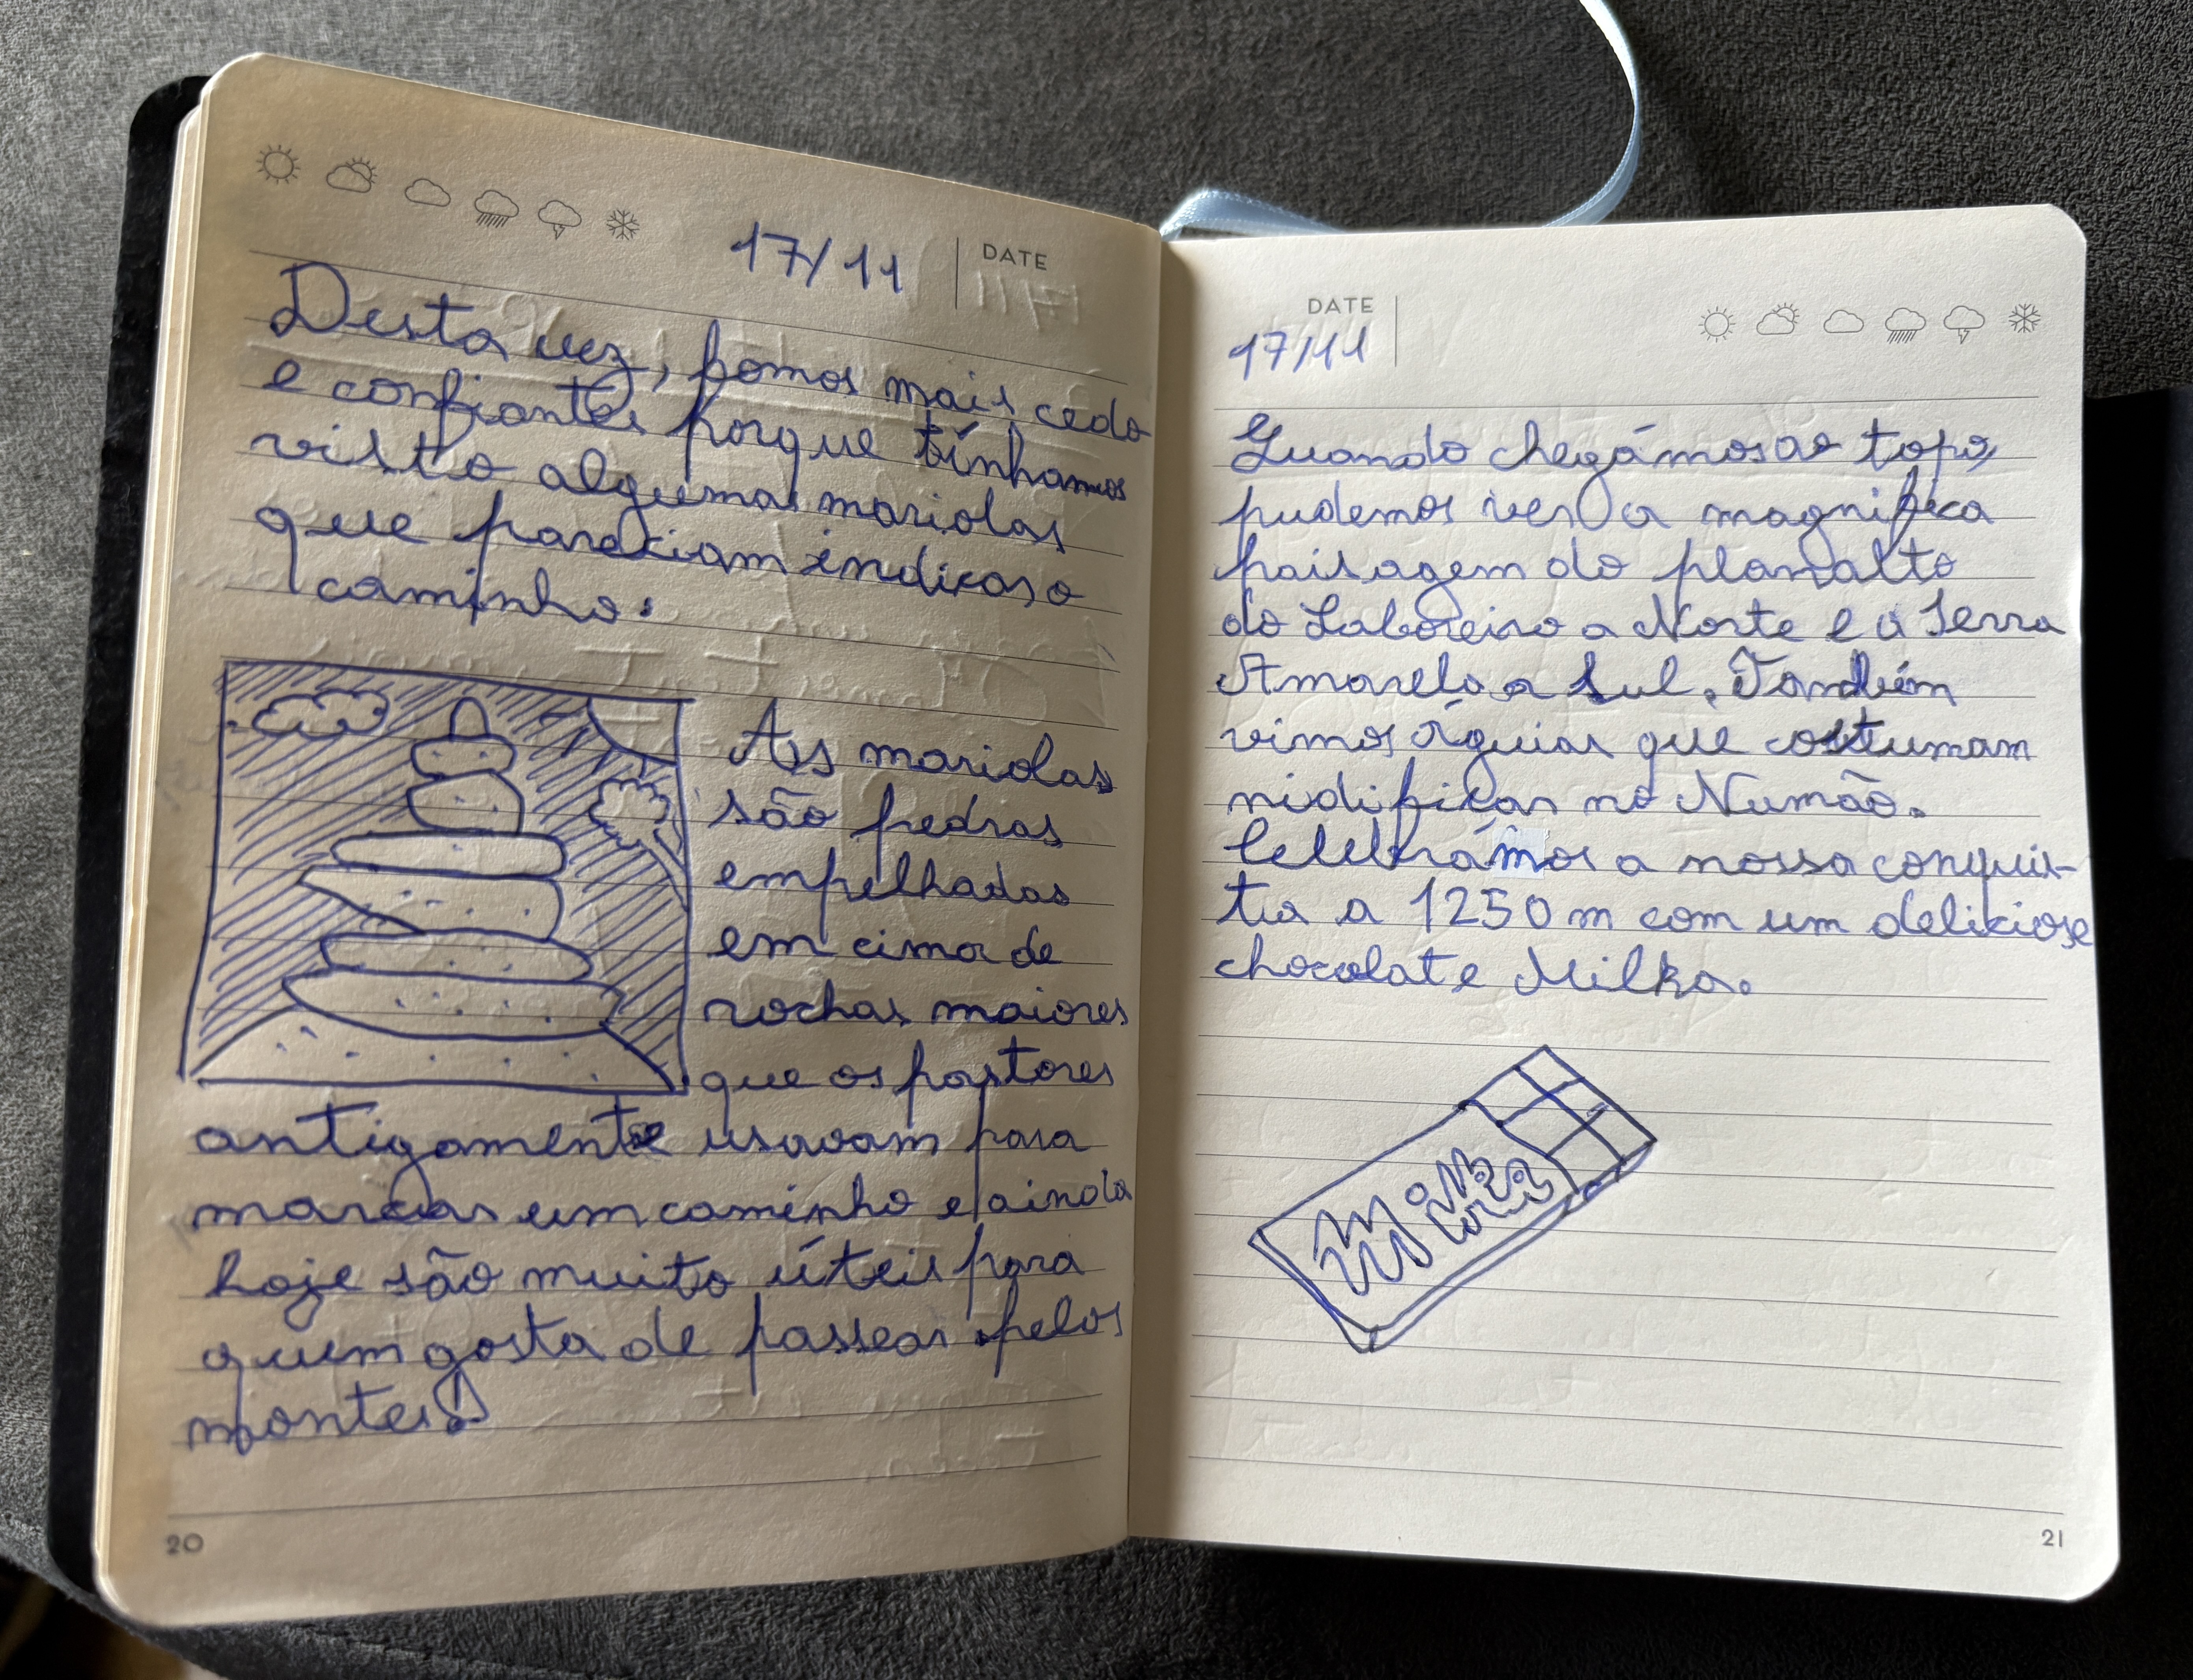 17/11
DATE
Desta vez, fomos mais cedo
e confiantes porque tínhamos
visto algumas mariolas
que pareciam indicar o
caminho:
As mariolas
são pedras
empilhadas
em cima de
rochas maiores
que os pastores
antigamente usavam para
marcar um caminho e ainda
hoje são muito úteis para
quem gosta de passear pelos
montes!
20
DATE
17/11
Quando chegámos ao topo,
pudemos ver a magnifica
paisagem do planalto
do Laboreiro a Norte e a Serra
Amarela a Sul. Também
vimos águias que costumam
nidificar no Numão.
Celebrámos a nossa conquis-
ta a 1250 m com um delicioso
chocolate Milka.
Milka
21